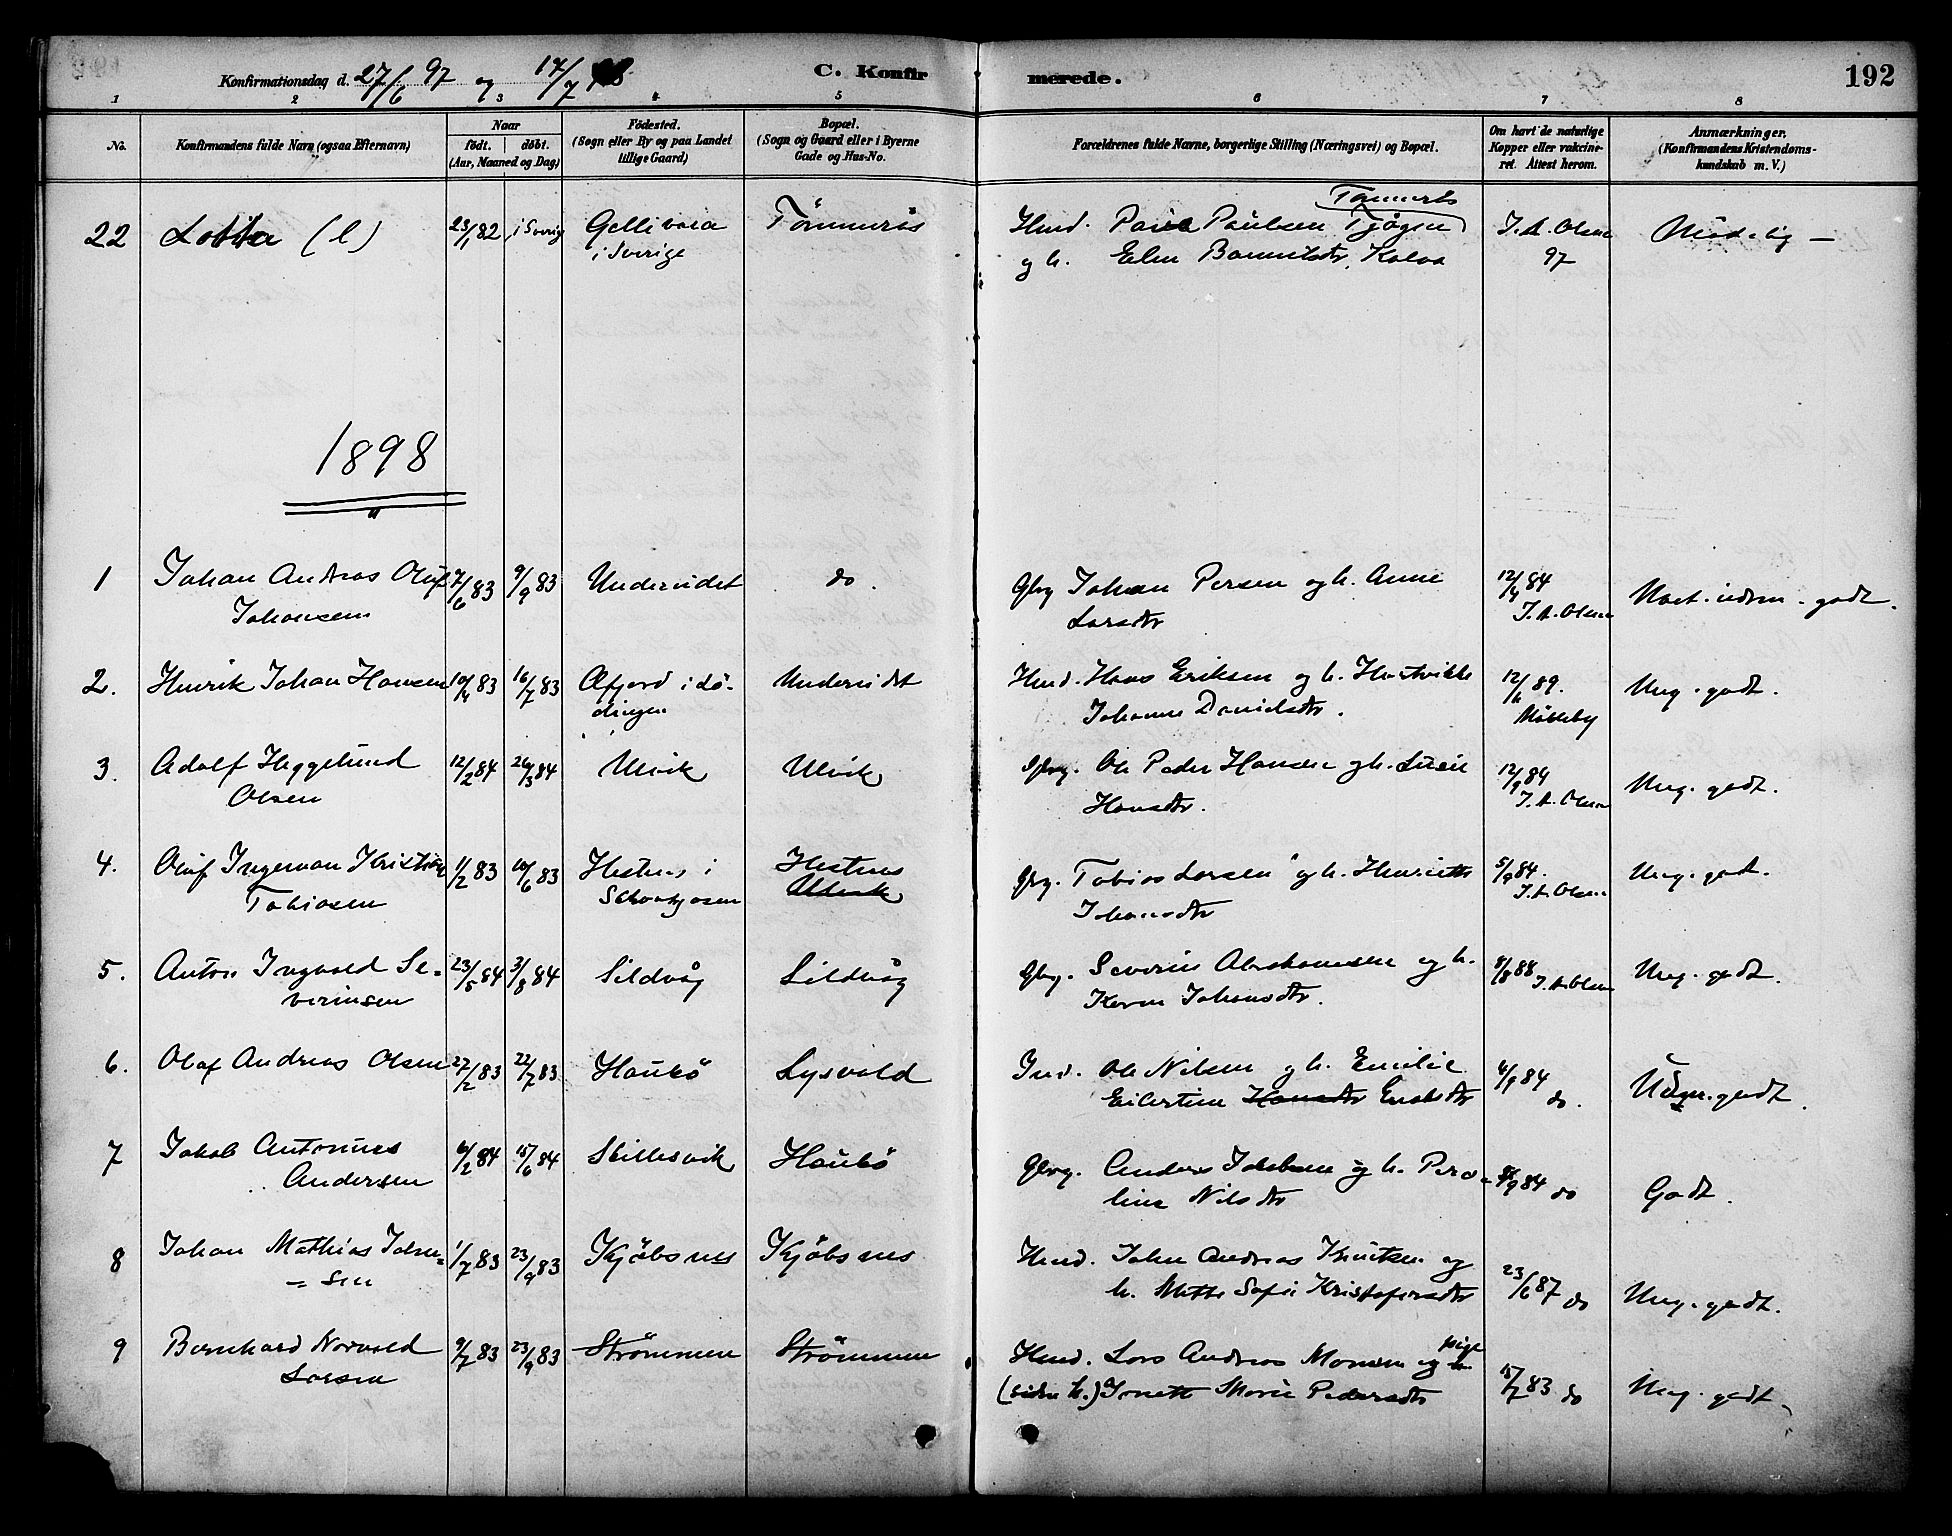 Konfirmationsdag d. 27/6 97 og 17/7 98
C. Konfirmerede.
192
1 2 3 4 5 6 7 8
No. Konfirmandens fulde Navn (ogsaa Efternavn) Naar født. døbt. (Aar, Maaned og Dag) Fødested. (Sogn eller By og paa Landet tillige Gaard) Bopæl. (Sogn og Gaard eller i Byerne Gade og Hus-No. Forældrenes fulde Navne, borgerlige Stilling (Næringsvei) og Bopæl. Om havt de naturlige Kopper eller vakcineret. Attest herom. Anmærkninger. (Konfirmandens Kristendomskundskab m. V.)
22 Lotta (l) 23/1 82 i Sverig Gellivara Tømmerås Hmd. Paul Paulsen J. A. Olsen Maadelig —
i Sverige og h. Elen 97
1898
1 Johan Andreas Oluf 7/6 83 9/9 83 Undereidet do. Gbrg Johan Persen og h. Anne 12/9 84
Johansen Larsdtr J. A. Olsen godt.
2. Henrik Johan Hansen 10/4 83 16/7 83 Øfjord i Lø- Undereidet Hmd. Hans Eriksen og h. 12/6 89. Meg. godt.
dingen Johanne Danielsdtr. Mølleby
3. Adolf Heggelund 12/2 84 26/3 84 Ulvik Ulvik Gbrg. Ole Peder Hansen og h. 12/9 84 Meg. godt.
Olsen Hansdtr. J. A. Olsen
4. Oluf Ingeman Kristian 1/2 83 10/6 83 Hestnes i Hestnes Gbrg. Tobias Larsen og h. Henriette 5/9 84. Meg. godt.
Tobiasen Ulvik Johansdtr J. A. Olsen
5. Anton Ingvald Se- 23/5 84 3/8 84 Sildvåg Sildvåg Gbrg. Severin Abrahamsen og h. 8/8 88 J. A. Olsen Meg. godt.
verinsen Karen Johansdtr.
6. Olaf Andreas Olsen 27/2 83 22/7 83 Haukø Lysvold Ind. Ole Nilsen og h. Emilie 6/9 84 godt.
Eilertine Hansdtr do.
7 Jakob Antonius 6/2 84 15/6 84 Skillesvik Haukø Gbrg. Anders Jakobsen og h. Pero- 9 84 do Godt.
Andersen line Nilsdtr
8 Johan Mathias Johan- 1/7 83 23/9 83 Kjøbsnes Kjøbsnes Hmd. Johan Andreas Knutsen og 23/6 87 do Meg. godt.
= sen h. Mette Sofie Kristofersdtr
9 Bernhard Norvald 9/7 83 23/9 83 Strømmen Strømmen Hmd. Lars Andreas Monsen og pige
Larsen (siden h.) Jonette Marie Pedersdtr 15/7 83 do Meg. godt.